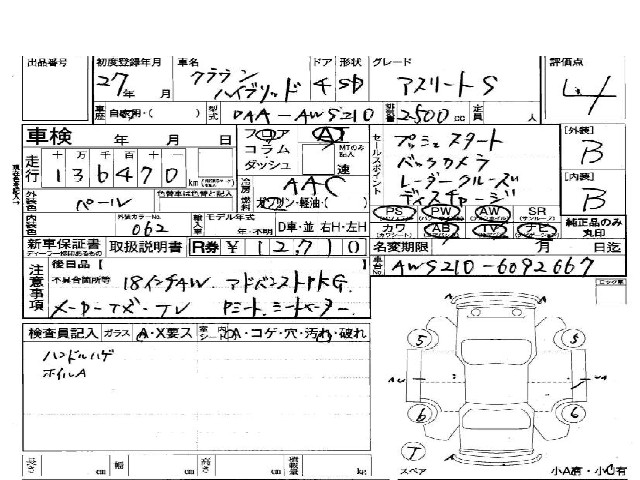 出品番号 初度登録年月 車名 ドア 形状 グレード 評価点
27年 月 クラウン ハイブリッド 4 SD アスリートS 4
車歴 自家用・( ) 型式 DAA-AWS210 排気量 2500 cc 定員 人
車検 年 月 日 フロア コラム ダッシュ AT MTのみ記入 速
セールスポイント プッシュスタート
バックカメラ
レーダークルーズ
ディスチャージ
[外装] B
[内装] B
走行 十 万 千 百 十 一
136470 km
冷房 AAC
外装色 パール 色替車は色替と記入 燃料 ガソリン・軽油・( )
PS PW AW SR
カワ AB TV ナビ 純正品のみ丸印
内装色 外装カラーNo. 062 輸入車 モデル年式 年・不明 D車・並 右H・左H
新車保証書 取扱説明書 R券 ¥12,710 名変期限 月 日迄
車台No. AWS210-6092667
注意事項 後日品【 】
不具合箇所等 18インチAW アドバンストPKG.
メーカーナビ・TV Pシート シートヒーター
検査員記入 ガラス A・X要ス 室内 シート A・コゲ・穴・汚れ・破れ
ハンドルハゲ
ホイルA
5 5
AW
6 6
T
スペア 小A有・小C有
長さ cm 幅 cm 高さ cm 積載量 kg